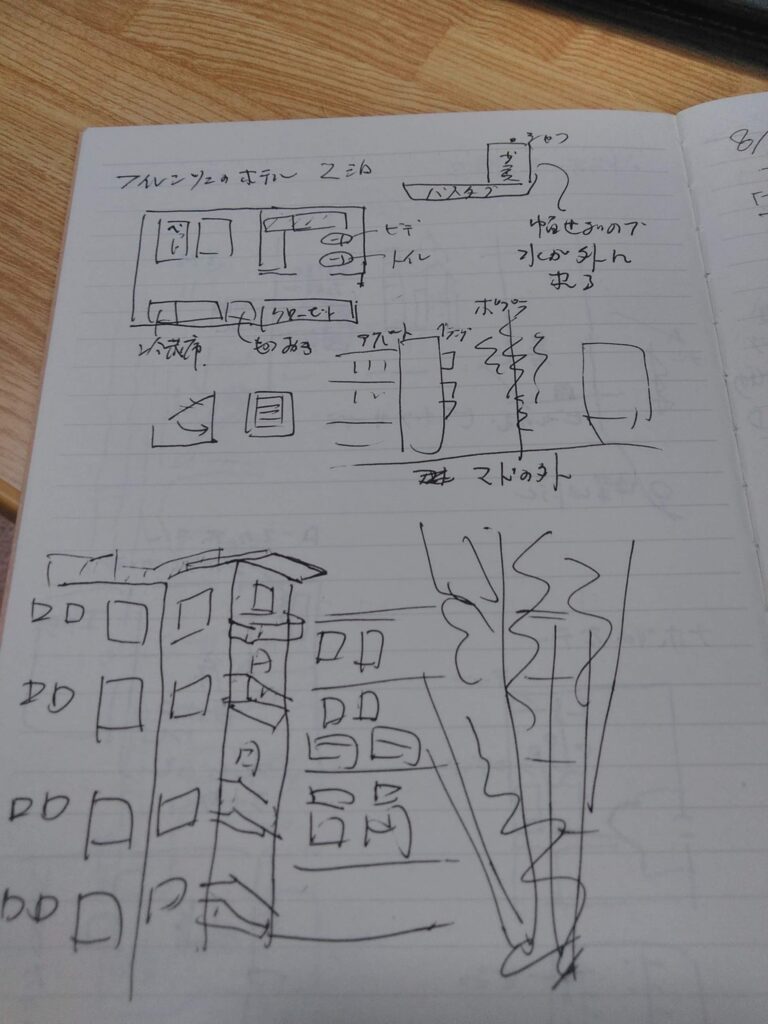 フィレンツェのホテル 2泊
シャワー
ガラス
バスタブ
幅せまいので
水が外に
来る
ベット
ビデ
トイレ
クローゼット
冷蔵庫
ものおき
アパート
ポプラ
マドの外